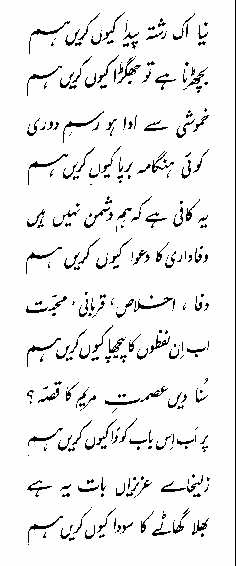 نیا اک رشتہ پیدا کیوں کریں ہم
بچھڑنا ہے تو جھگڑا کیوں کریں ہم
خموشی سے ادا ہو رسمِ دوری
کوئی ہنگامہ برپا کیوں کریں ہم
یہ کافی ہے کہ ہم دشمن نہیں ہیں
وفاداری کا دعوا کیوں کریں ہم
وفا ، اخلاص ، قربانی ، محبّت
اب اِن لفظوں کا پیچھا کیوں کریں ہم
سُنا دیں عصمتِ مریم کا قصّہ ؟
پر اَب اِس باب کو وَا کیوں کریں ہم
زلیخائے عزیزاں بات یہ ہے
بھلا گھاٹے کا سودا کیوں کریں ہم